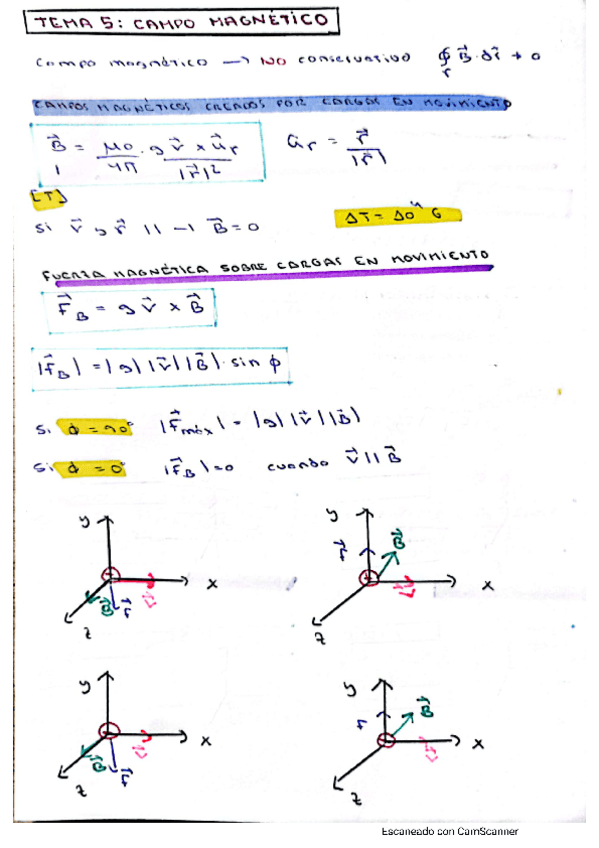 TEMA 5: CAMPO MAGNÉTICO
Campo magnético → NO conservativo ∮ B⃗·dl⃗ ≠ 0
Γ
CAMPOS MAGNÉTICOS CREADOS POR CARGAS EN MOVIMIENTO
B⃗ = μ0/4π · q v⃗ × u⃗r / |r⃗|² u⃗r = r⃗/|r⃗|
[T]
Si v⃗ y r⃗ || → B⃗ = 0 1T = 10⁴ G
FUERZA MAGNÉTICA SOBRE CARGAS EN MOVIMIENTO
F⃗B = q v⃗ × B⃗
|F⃗B| = |q| |v⃗| |B⃗| · sin φ
Si φ = 90° |F⃗máx| = |q| |v⃗| |B⃗|
Si φ = 0° |F⃗B| = 0 cuando v⃗ || B⃗
y x z B⃗ F⃗ v⃗
y x z F⃗ B⃗ v⃗
y x z B⃗ F⃗ v⃗
y x z F B⃗ v⃗
Escaneado con CamScanner